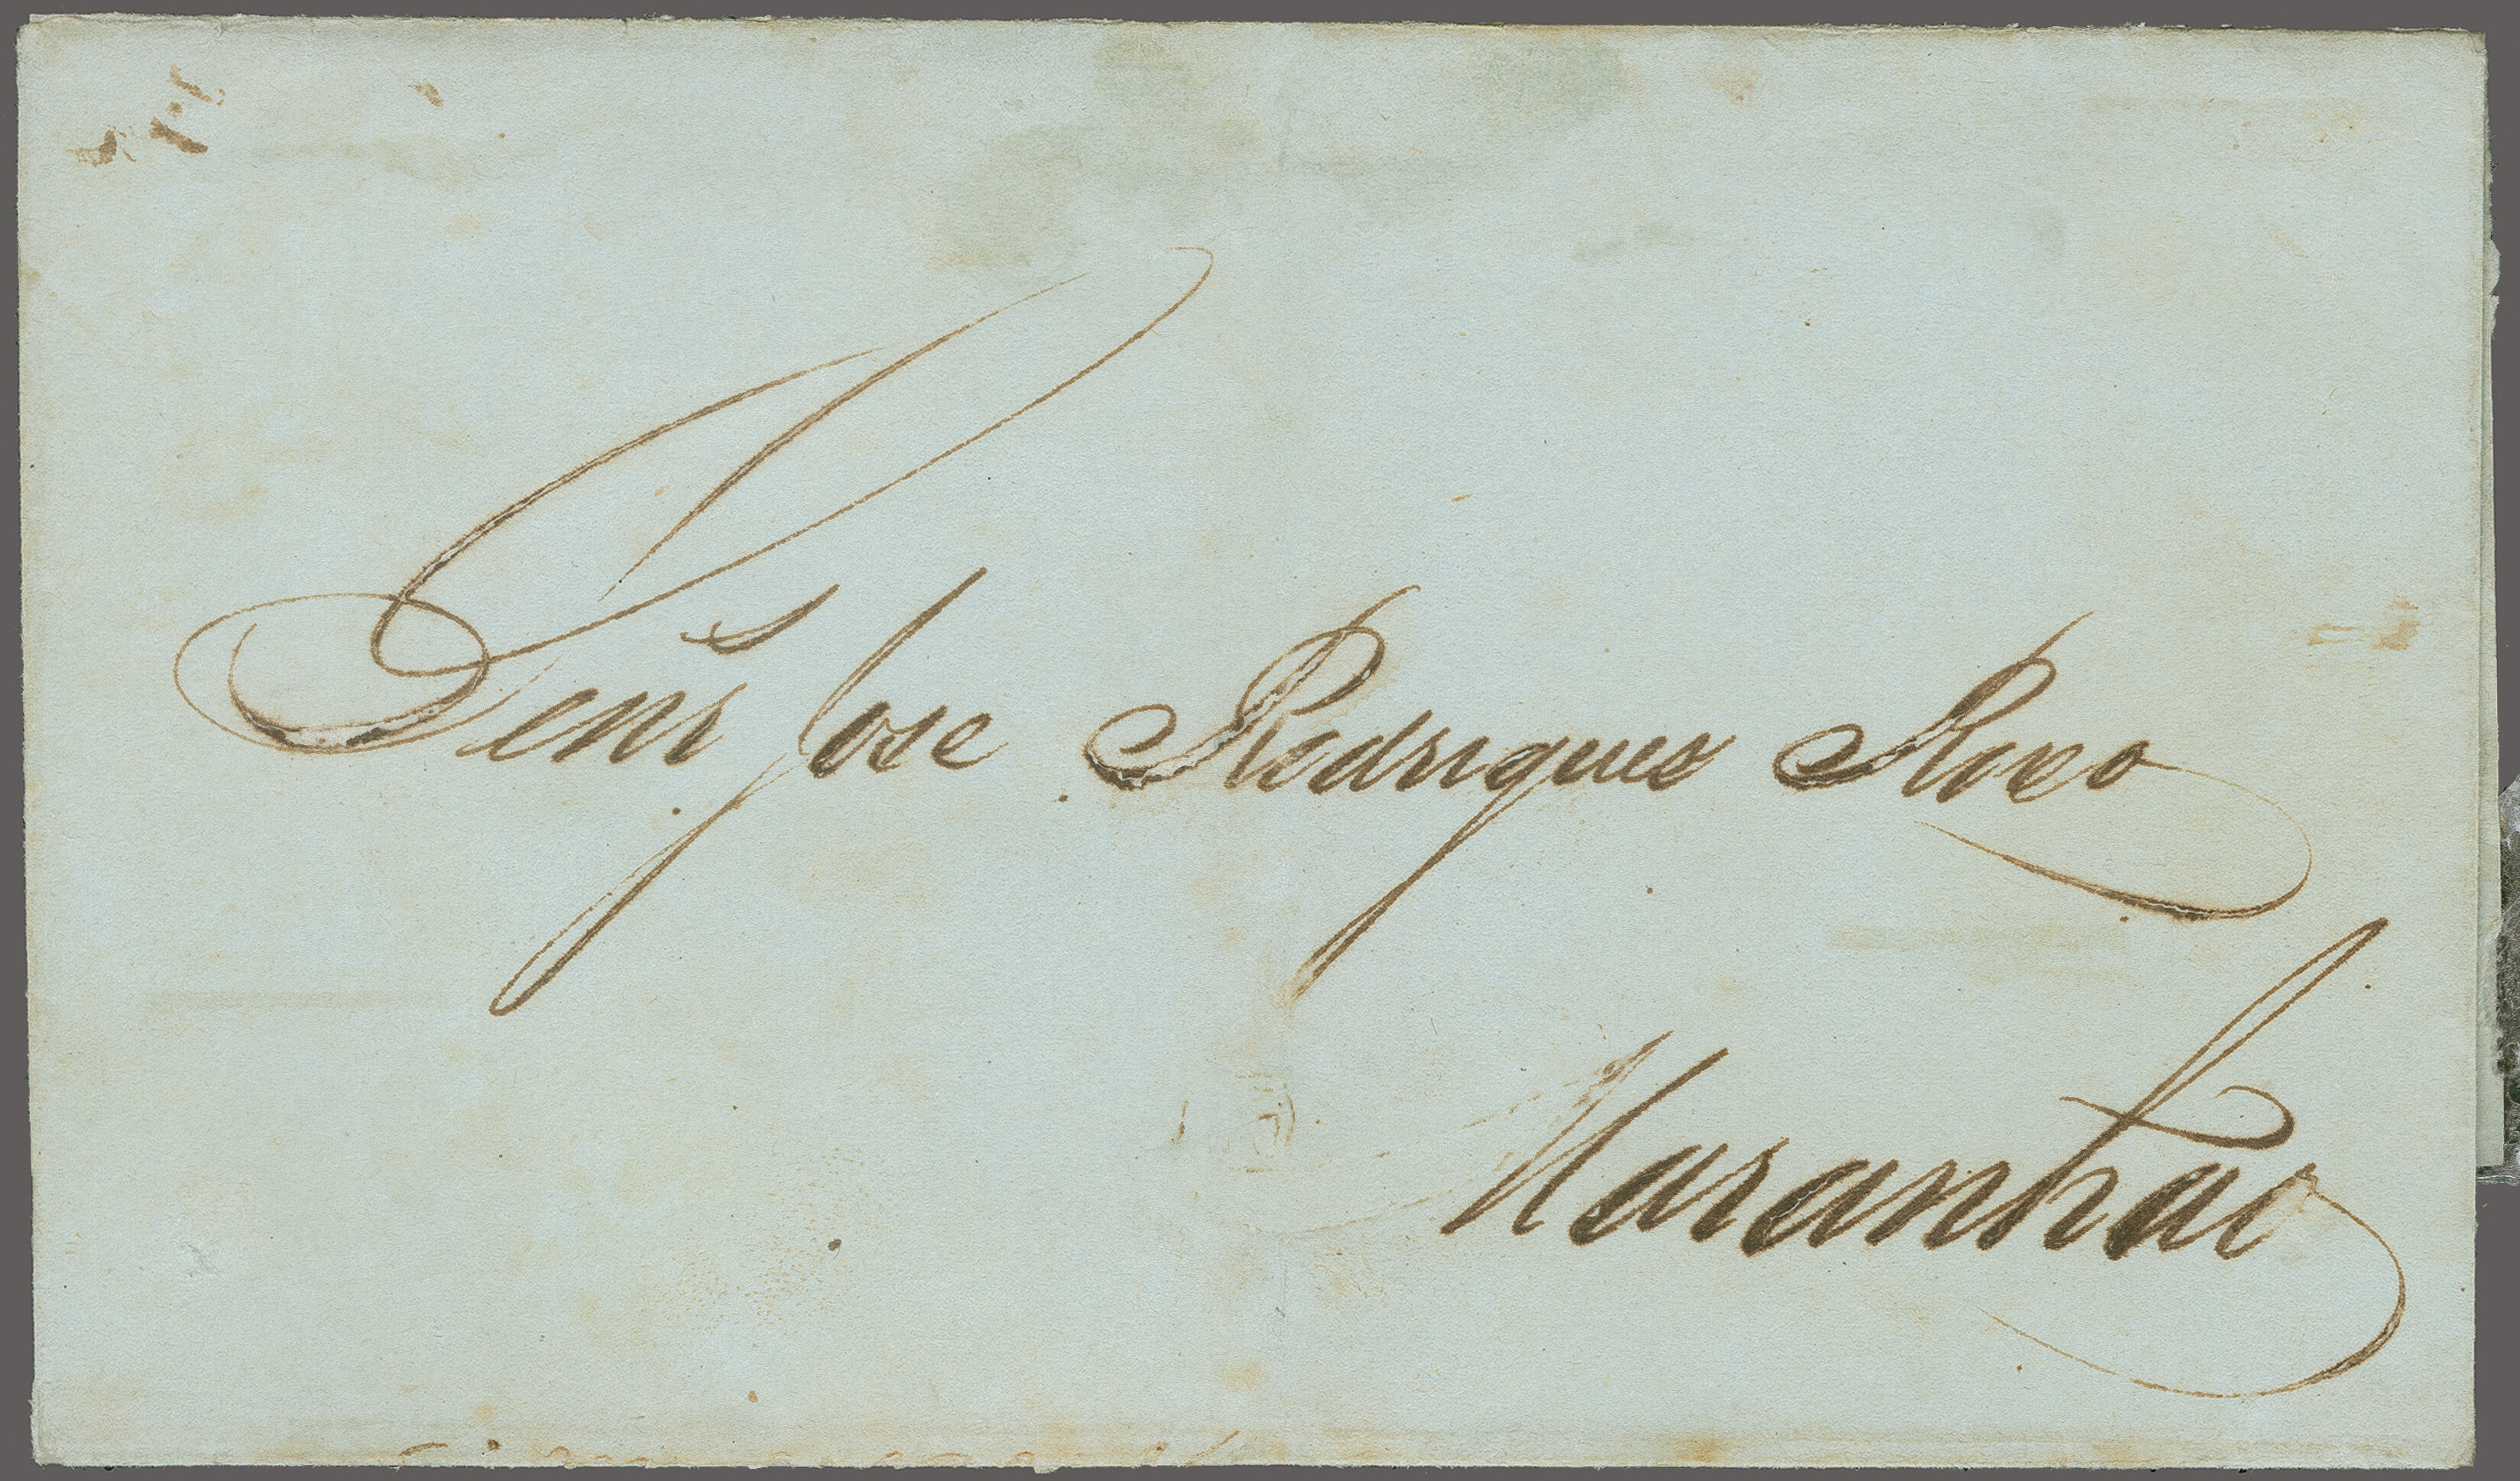 Senr Jose Rodrigues Roxo
Maranhão